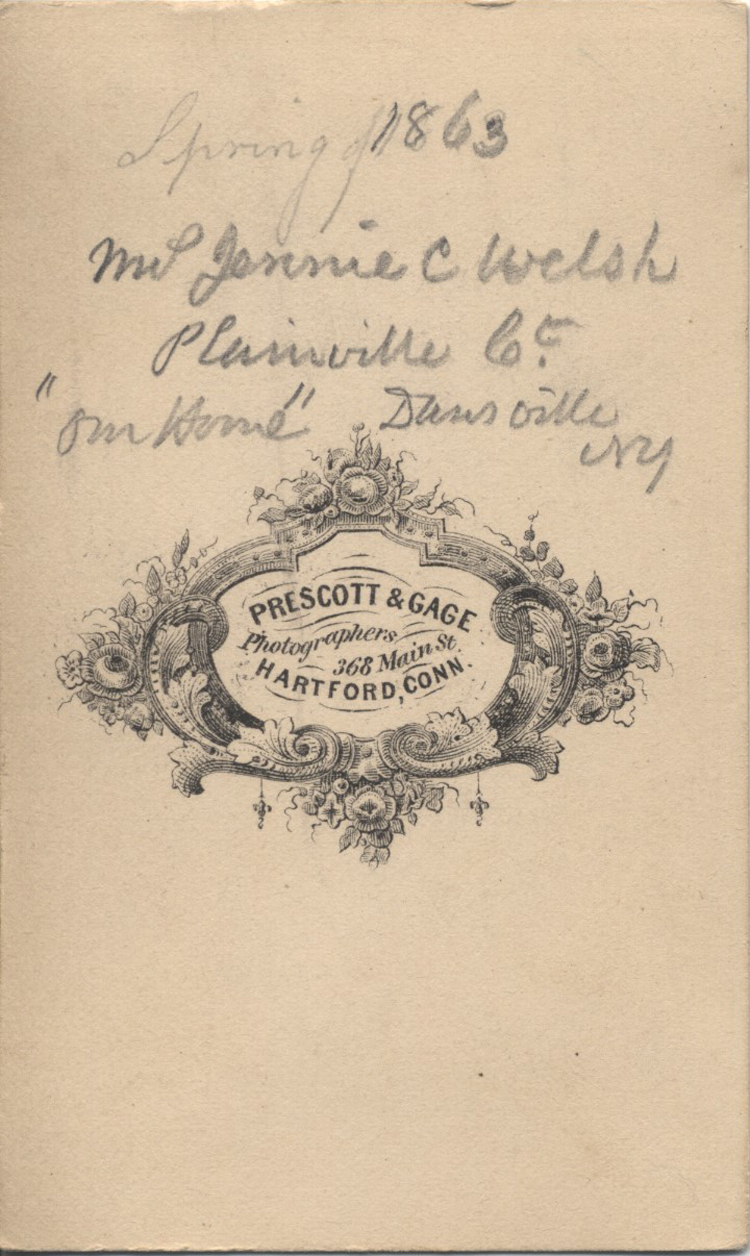 Spring of 1863
Mrs Jennie C Welsh
Plainville Ct
"Our Home" Dansville
NY
PRESCOTT & GAGE
Photographers
368 Main St
HARTFORD, CONN.